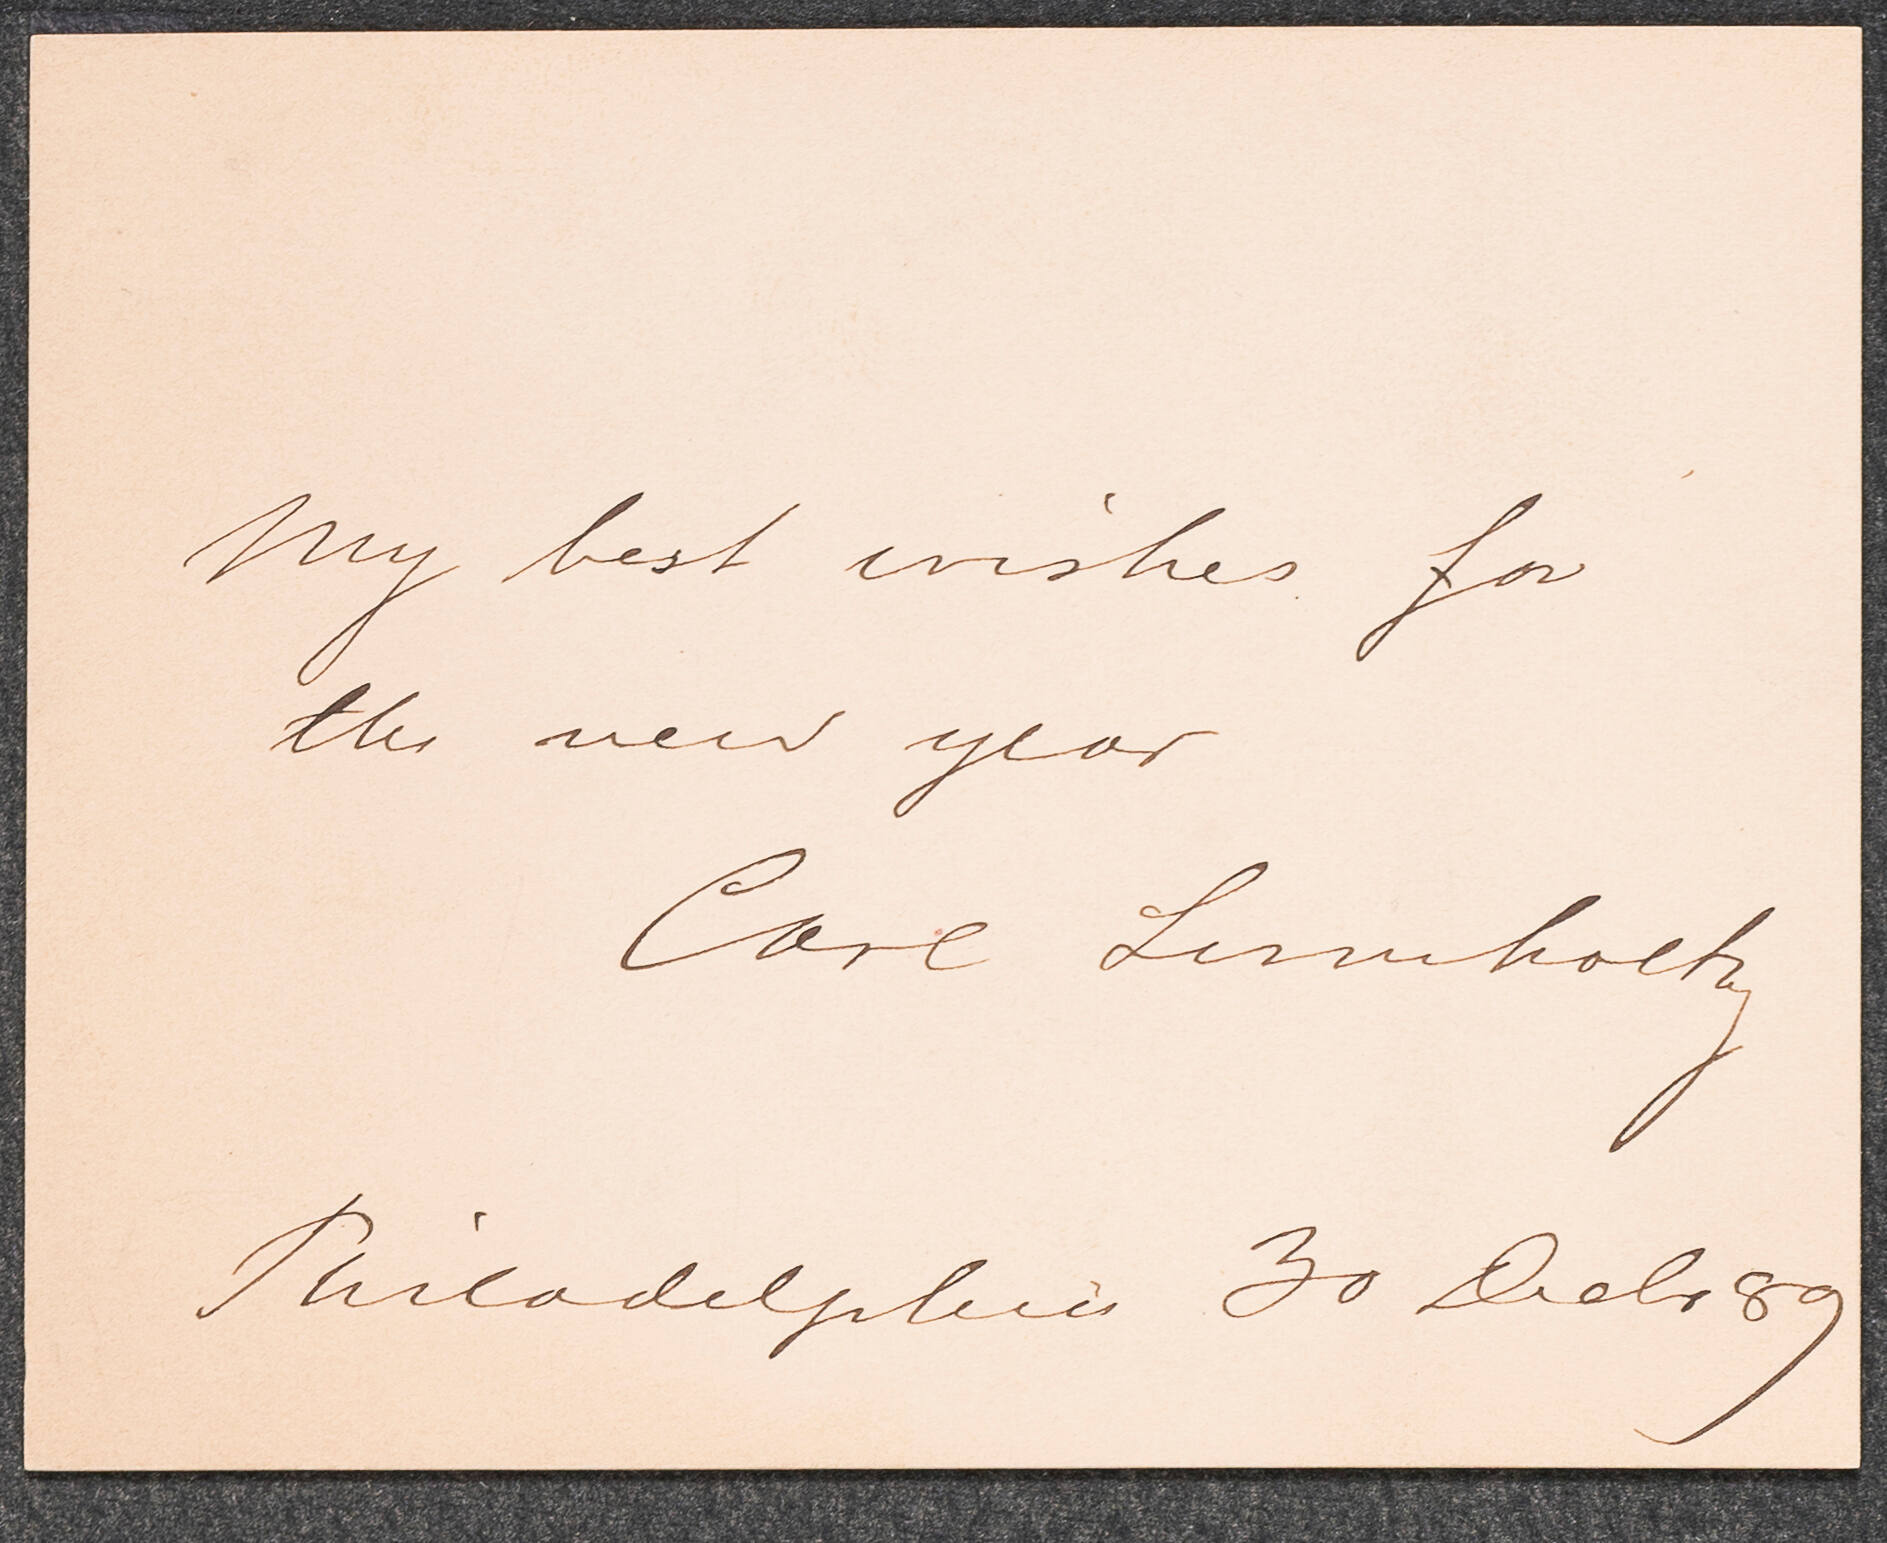 My best wishes for
the new year
Carl Lumholtz
Philadelphia 30 Decbr 89